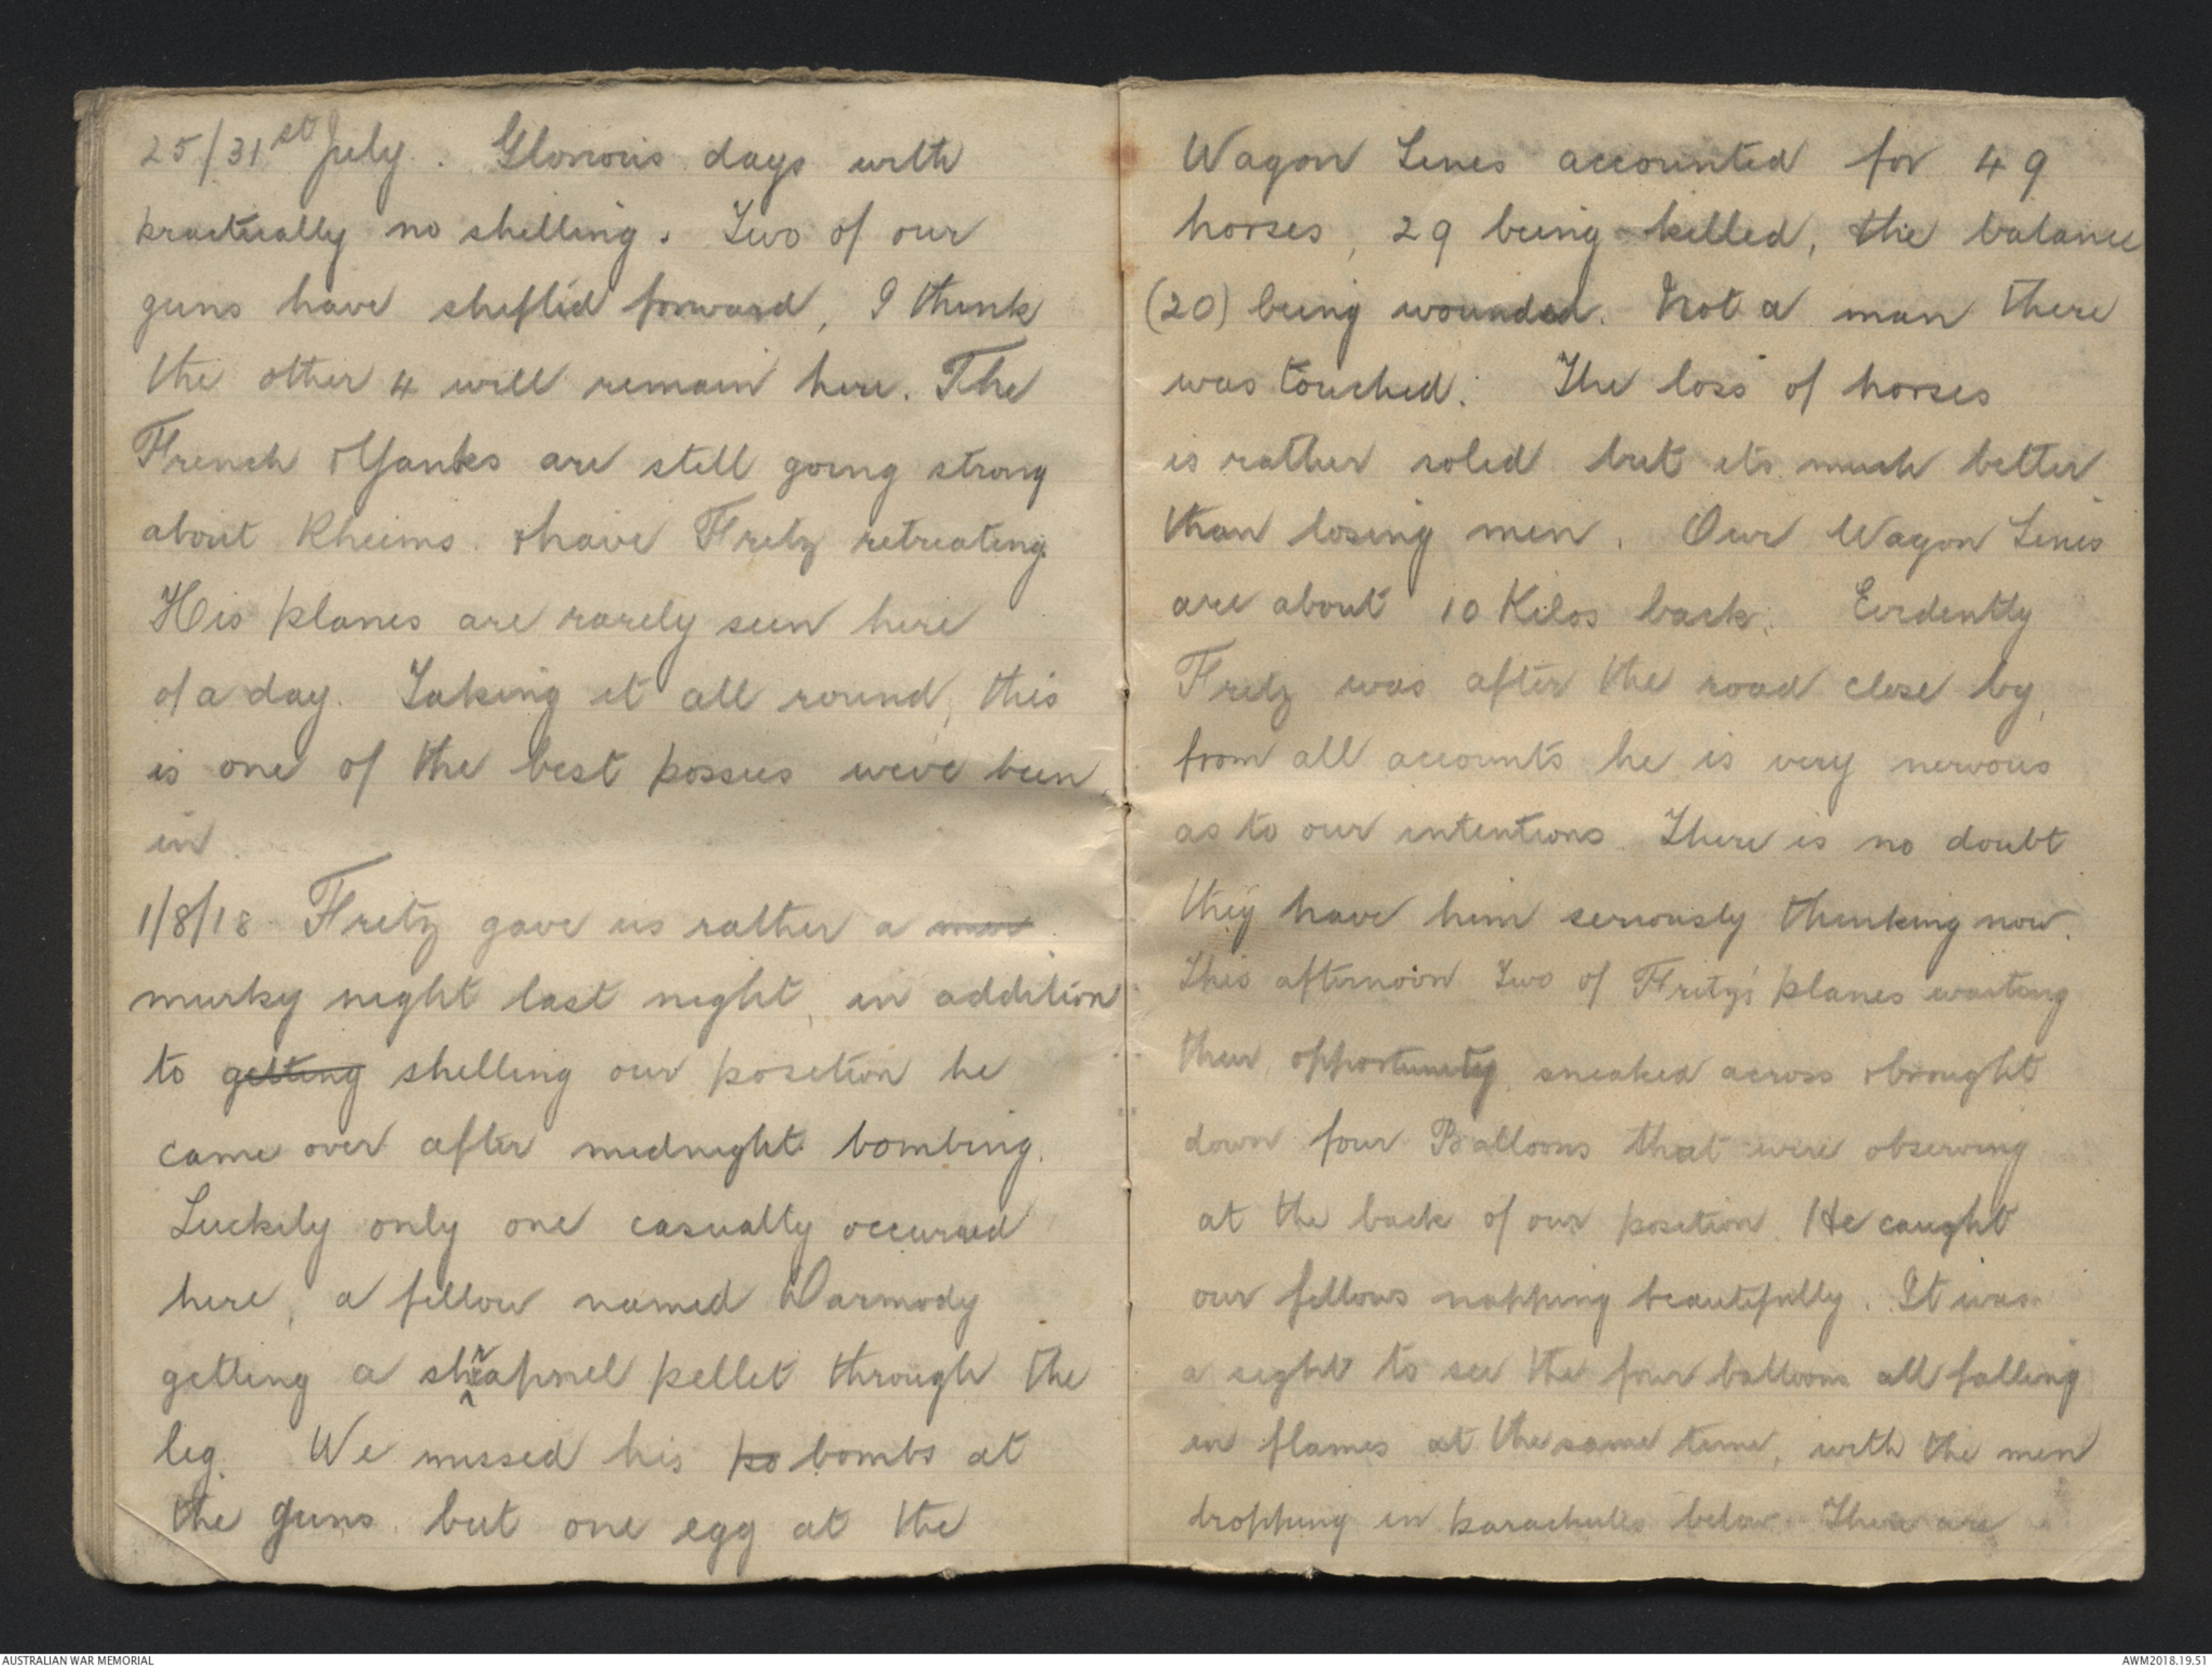 25/31st July. Glorious days with
practically no shelling. Two of our
guns have shifted forward, I think
the other 4 will remain here. The
French & Yanks are still going strong
about Rheims. & have Fritz retreating.
His planes are rarely seen here
of a day. Taking it all round, this
is one of the best possies weve been
in.
1/8/18 Fritz gave us rather a
murky night last night, in addition
to getting shelling our position he
came over after midnight bombing.
Luckily only one casualty occurred
here, a fellow named Darmody
getting a shrapnel pellet through the
leg. We missed his po bombs at
the guns, but one egg at the
Wagon Lines accounted for 49
horses, 29 being killed, the balance
(20) being wounded. Not a man there
was touched. The loss of horses
is rather solid but its much better
than losing men. Our Wagon Lines
are about 10 Kilos back. Evidently
Fritz was after the road close by,
from all accounts he is very nervous
as to our intentions. There is no doubt
they have him seriously thinking now.
This afternoon two of Fritz's planes waiting
their opportunity, sneaked across & brought
down four Balloons that were observing
at the back of our position. He caught
our fellows napping beautifully. It was
a sight to see the four balloons all falling
in flames at the same time, with the men
dropping in parachutes below. There are
AUSTRALIAN WAR MEMORIAL
AWM2018.19.51